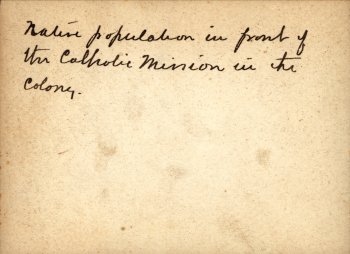 Native population in front of
the Catholic Mission in the
Colony.